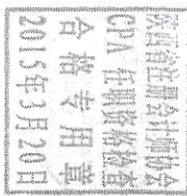 省注册会计师协会
CPA 任职资格检查
合格专用章
2015年3月20日